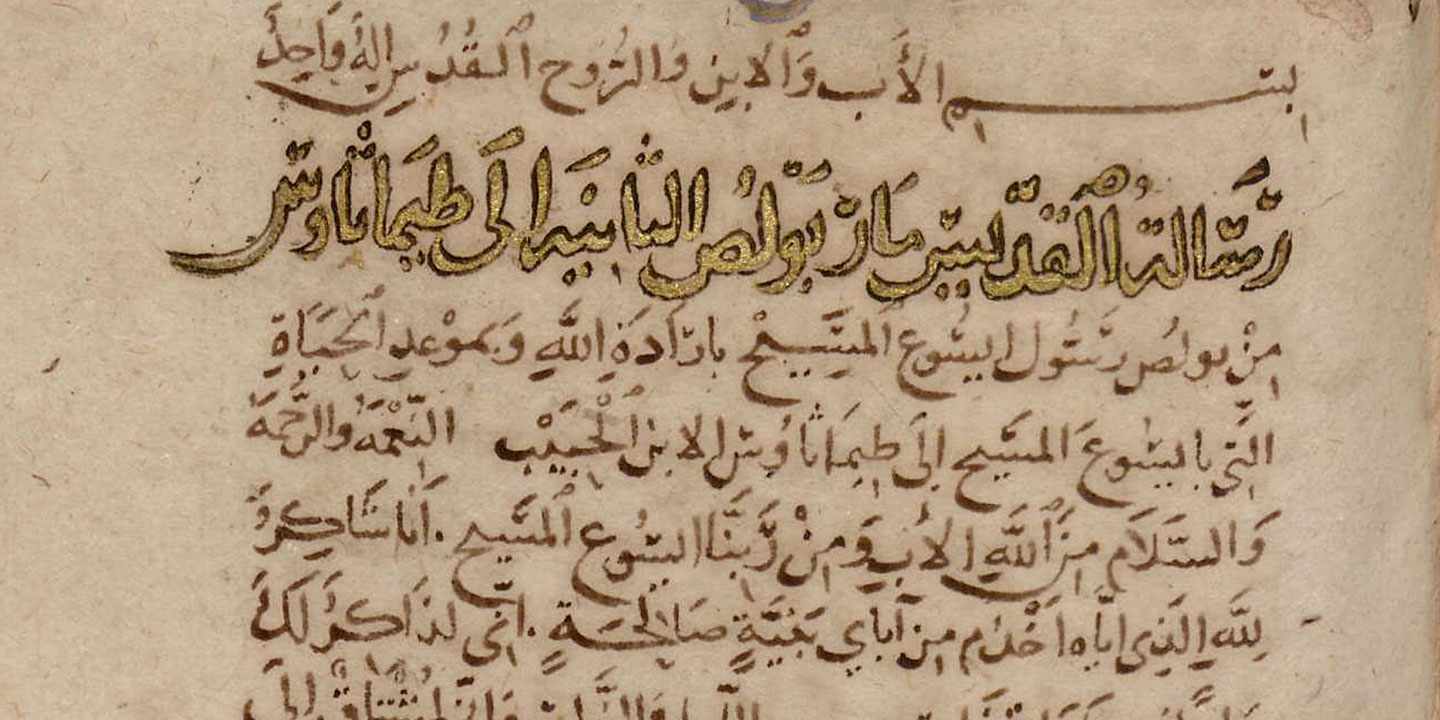 بسم الأَب وَٱلابن وَالرُّوح ٱلقُدُس إلهُ وَاحِدُ
رسَالة ٱلقدّيس مَار بَولُص الثانيَه الَى طيمَاثاوس
مِنْ بولُص رَسُول ايسُوع المَسِيحْ بارَادَةِ اللَّهِ وَبموْعدِ ٱلحَيَاةِ
التَّى بايسُوعَ المسَيح الَى طِيمَاثاوُس الابن ٱلْحَبيَبْ النِّعْمَةُ وَالرَّحْمَة
وَالسَّلَام مِنَ ٱللَّهِ الاَبِ وَمِنْ رَّبنَّا ايسُوع ٱلمسَيح . أَنا شَاكِرُ
لِلَّهِ الَذِى ايَّاه اَخْدُم مِن آبَاي بَنيَّةٍ صَالحَةٍ . انِّى لذَاكرُ لَكَ